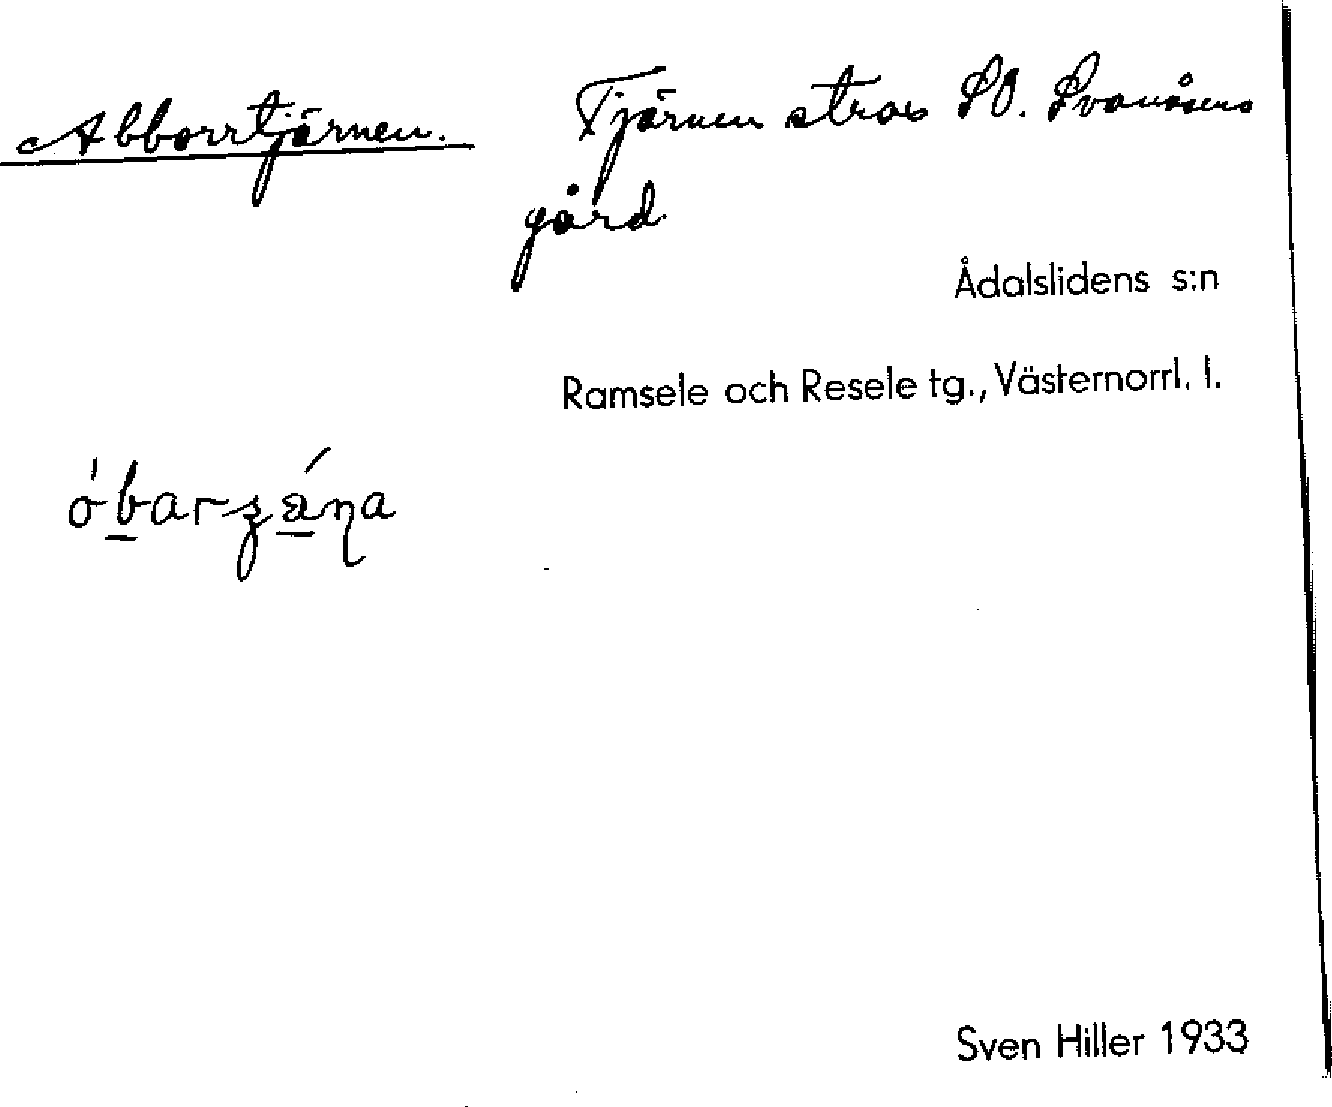 Abborrtjärnen.
Tjärnen strax SO. Svanåsens
gård
Ådalslidens s:n
Ramsele och Resele tg., Västernorrl. l.
Sven Hiller 1933